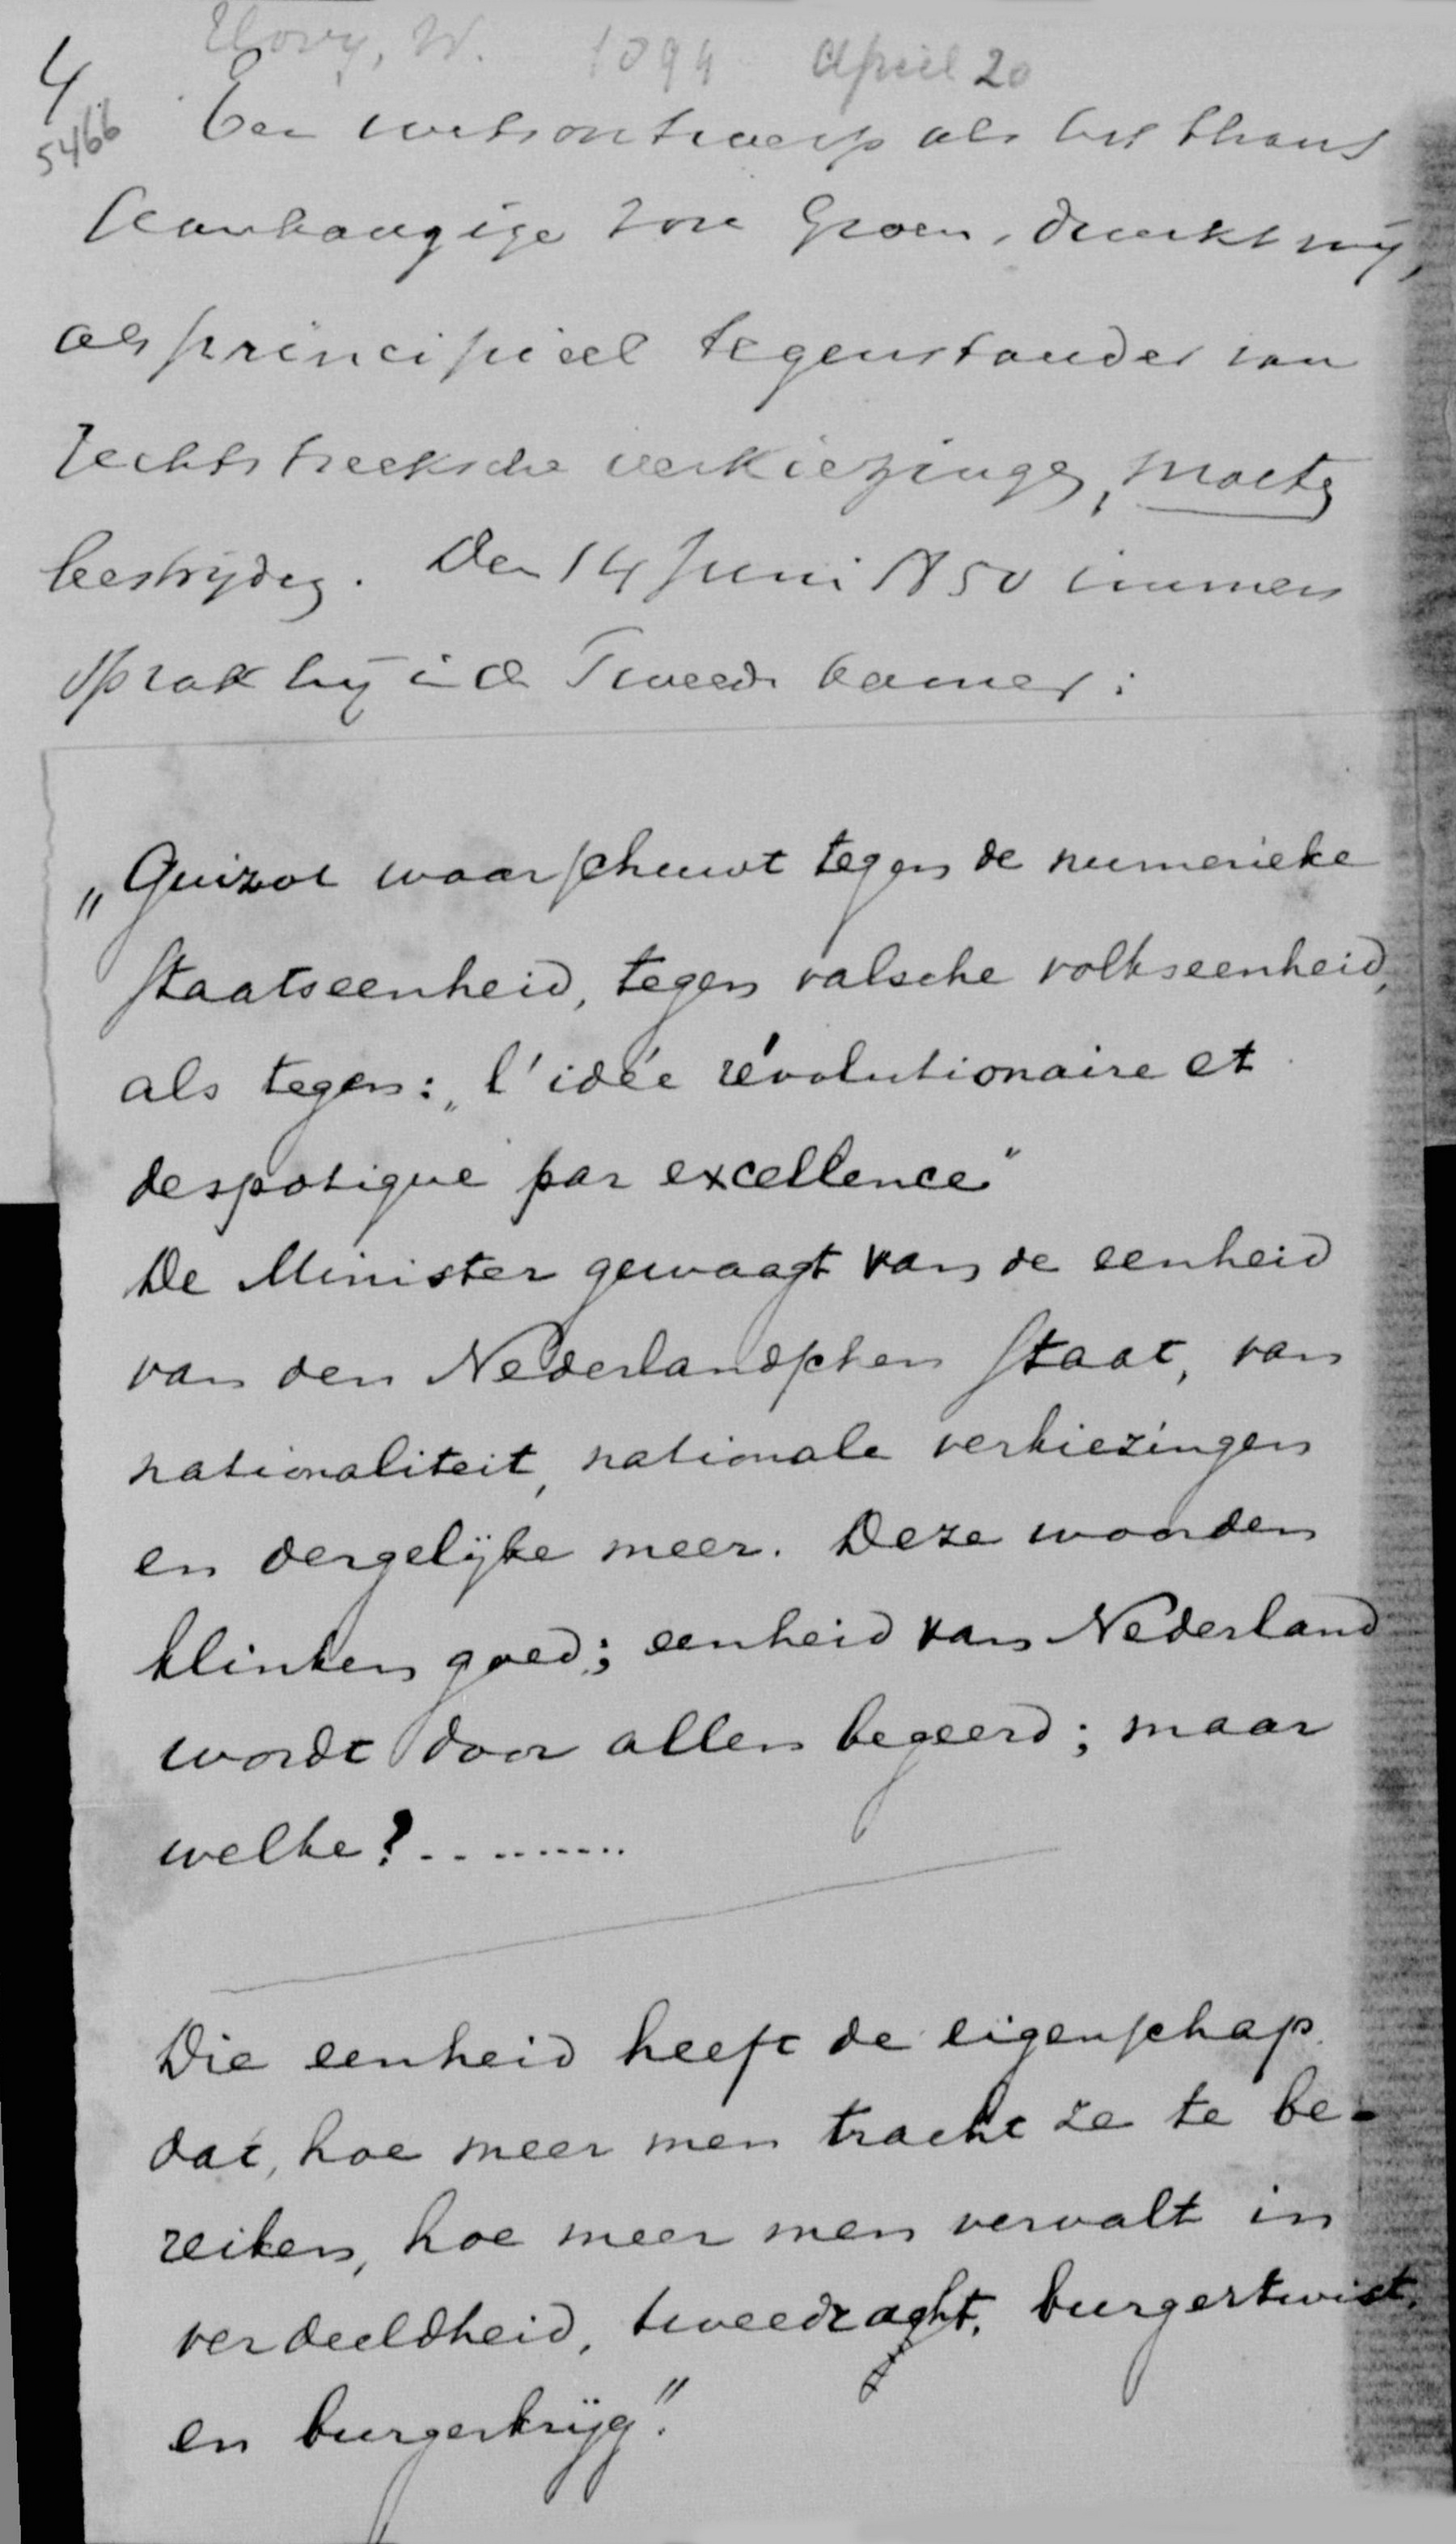 Hovy, W. 1894 April 20
4
5466
Een wetsontwerp als het thans
aanhangige zou Groen, dunkt mij,
als principieel tegenstander van
rechtstreeksche verkiezingen, moeten
bestrijden. Den 14 Juni 1850 immers
sprak hij in de Tweede Kamer:
„Guizot waarschuwt tegen de numerieke
staatseenheid, tegen valsche volkseenheid,
als tegen: „l'idée révolutionaire et
despotique par excellence"
De Minister gewaagt van de eenheid
van den Nederlandschen staat, van
nationaliteit, nationale verkiezingen
en dergelijke meer. Deze woorden
klinken goed; eenheid van Nederland
wordt door allen begeerd; maar
welke?..........
Die eenheid heeft de eigenschap
dat, hoe meer men tracht ze te be-
reiken, hoe meer men vervalt in
verdeeldheid, tweedracht, burgertwist,
en burgerkrijg."